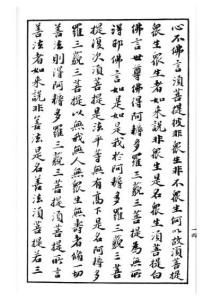 心不佛言須菩提彼非眾生非不眾生何以故須菩提
眾生眾生者如來說非眾生是名眾生須菩提白
佛言世尊佛得阿耨多羅三藐三菩提為無所
得耶佛言如是如是我於阿耨多羅三藐三菩
提復次須菩提是法平等無有高下是名阿耨多
羅三藐三菩提以無我無人無眾生無壽者修一切
善法則得阿耨多羅三藐三菩提須菩提所言
善法者如來說非善法是名善法須菩提若三
一四